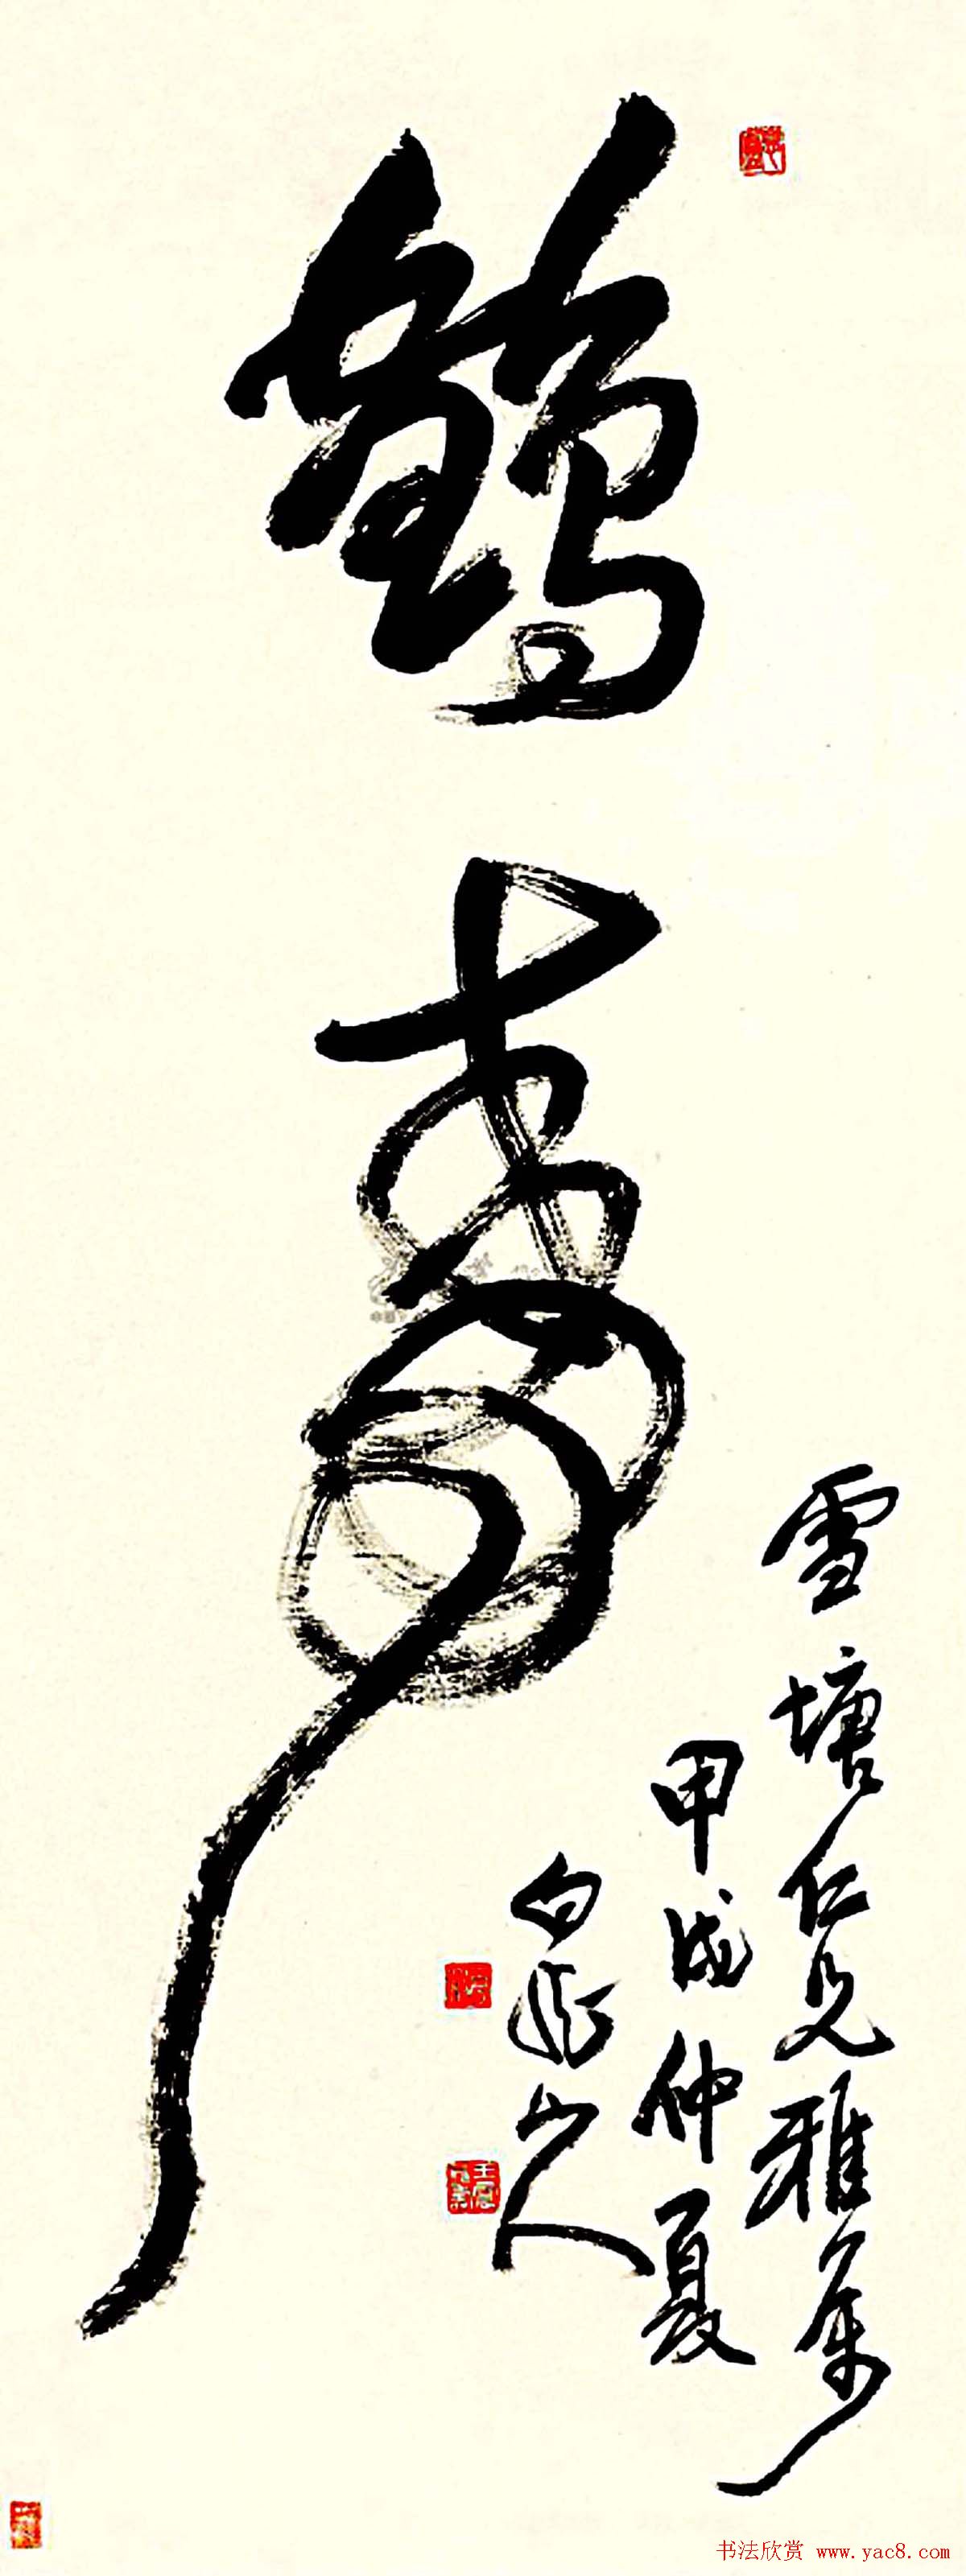 鶴壽
雪塘仁兄雅屬
甲戌仲夏
白龍山人
书法欣赏 www.yac8.com